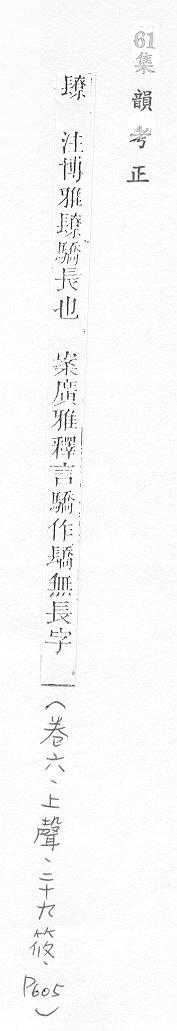 61集韻考正
镽 注博雅镽驕長也 案廣雅釋言驕作無長字 (卷六、上聲、二十九筱、P605)